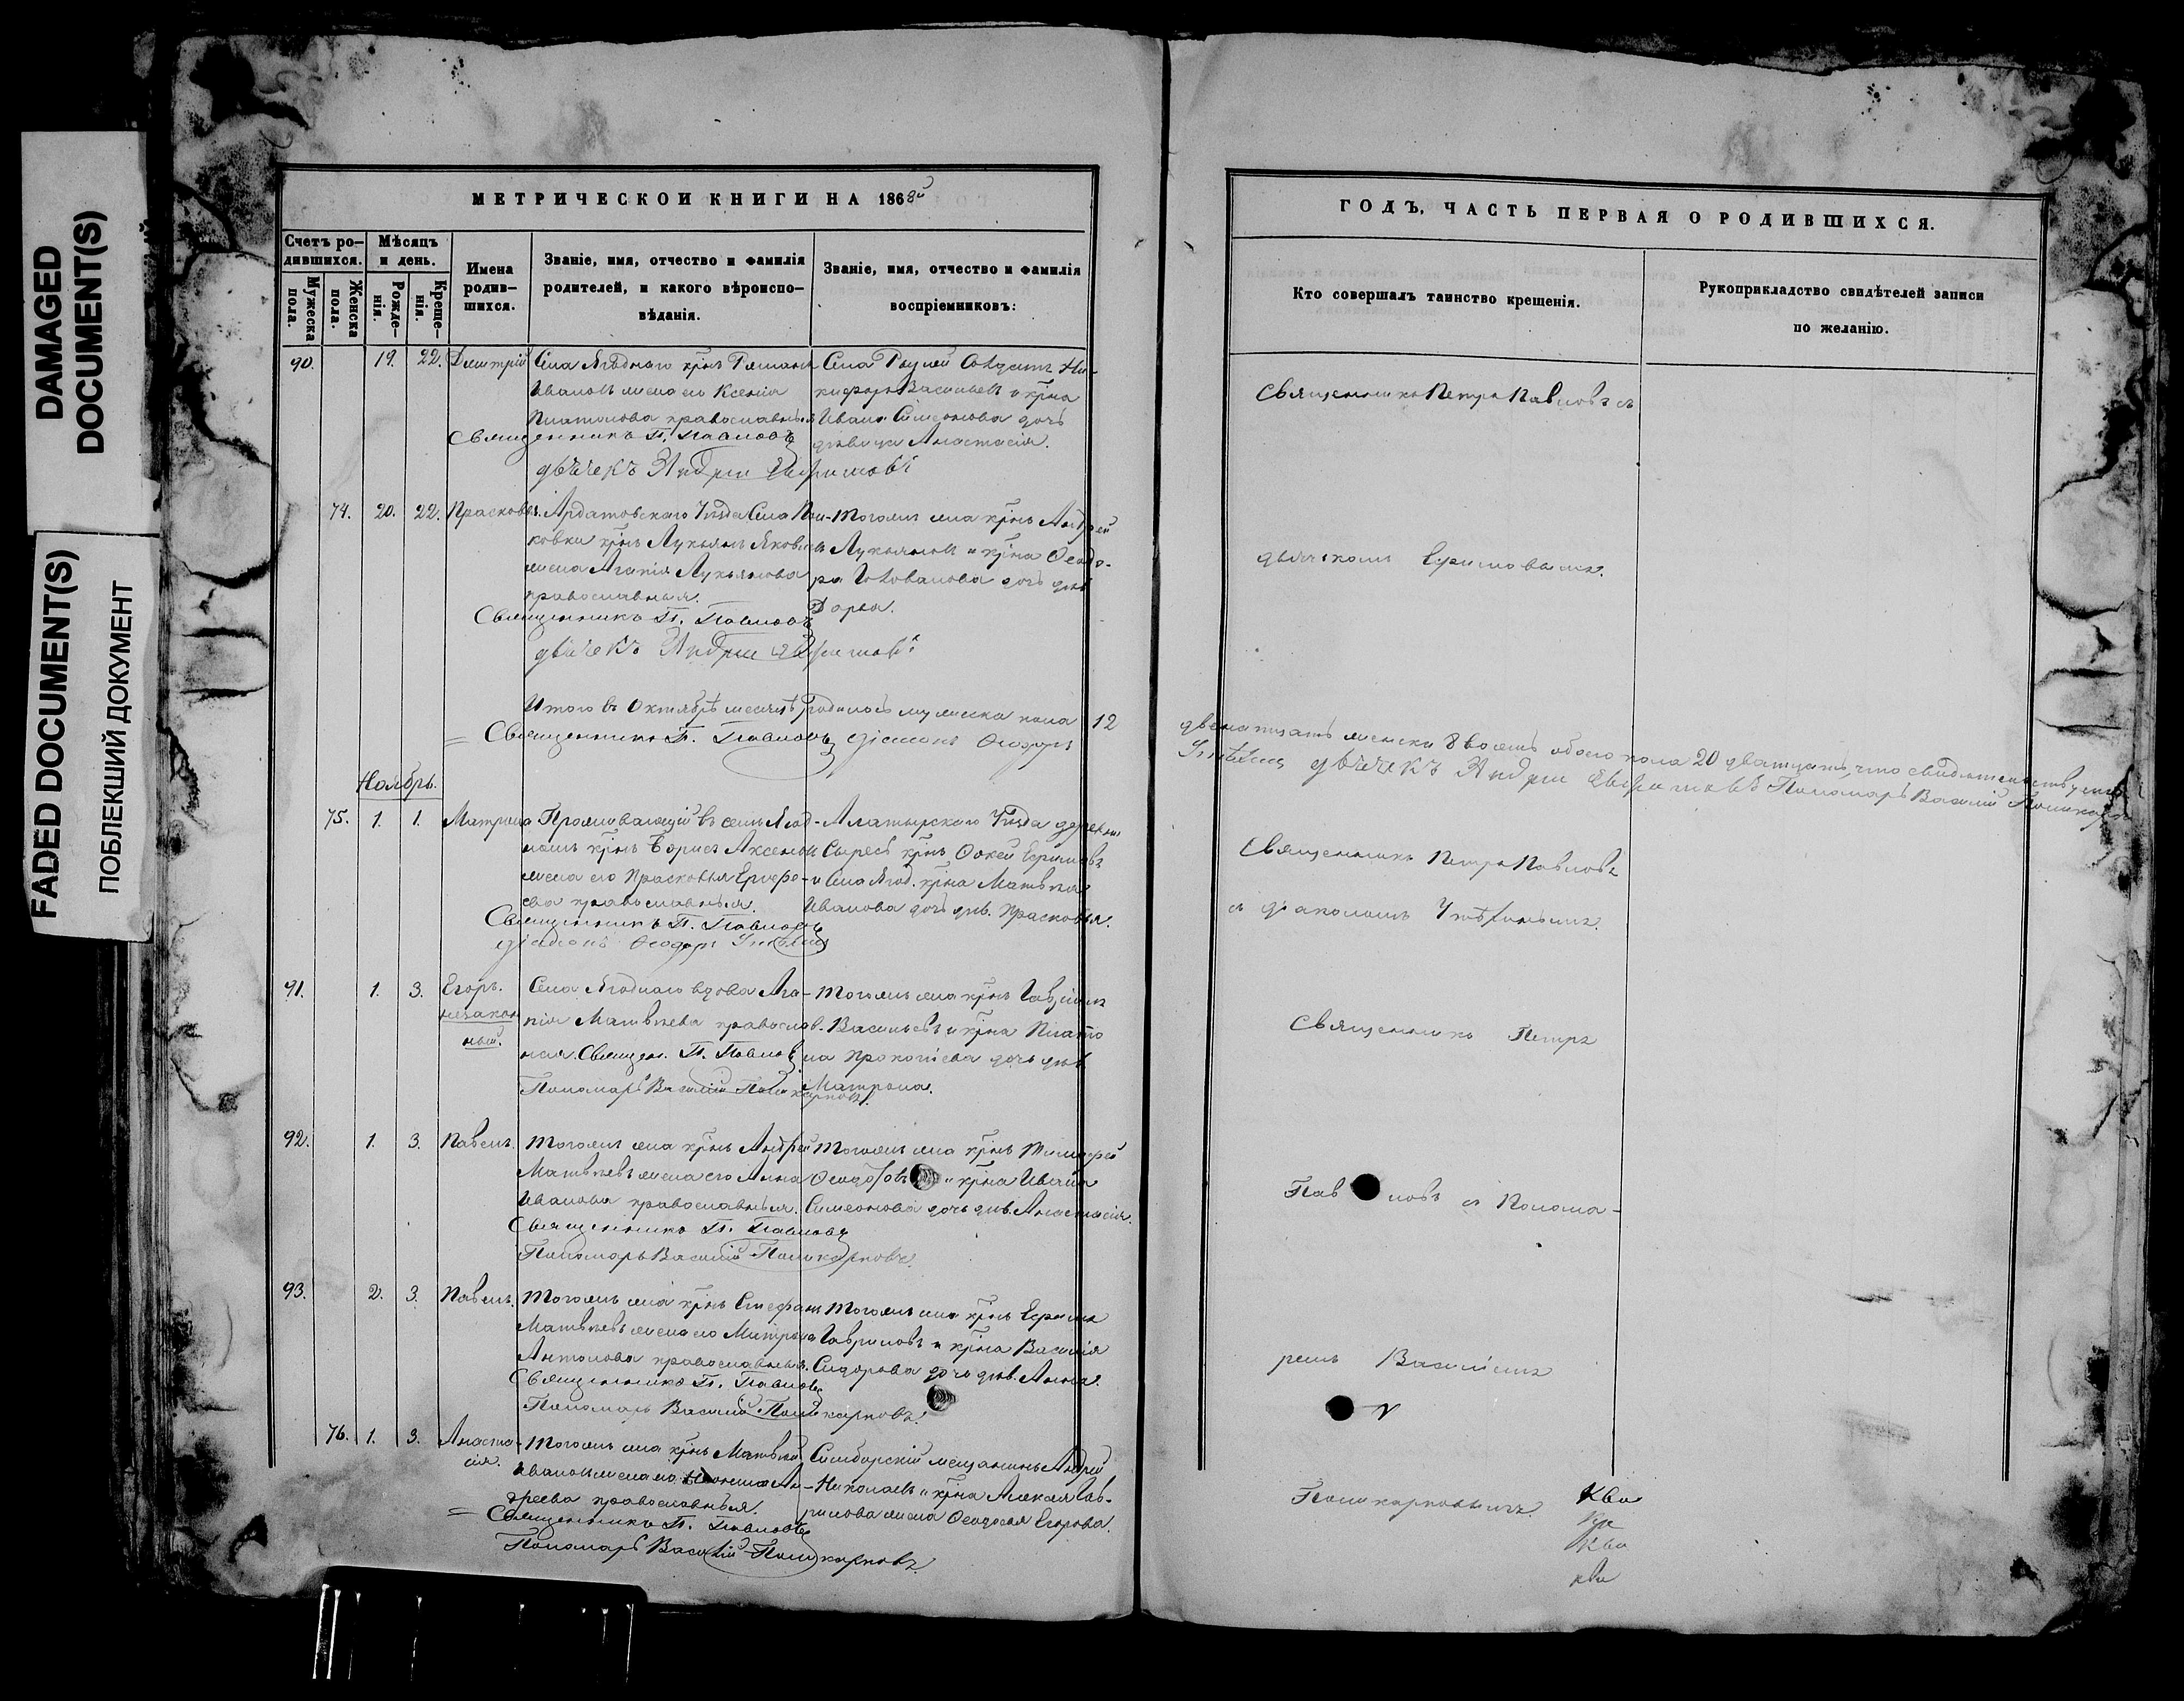 DAMAGED
DOCUMENT(S)
FADED DOCUMENT(S)
ПОБЛЕКШИЙ ДОКУМЕНТ
МЕТРИЧЕСКОЙ КНИГИ НА 1868й
Счетъ ро-
дившихся.
Мужеска
пола.
Женска
пола.
Мѣсяцъ
и день.
Рожде-
нія.
Креще-
нія.
Имена
родив-
шихся.
Званіе, имя, отчество и фамилія
родителей, и какого вѣроиспо-
вѣданія.
Званіе, имя, отчество и фамилія
воспріемниковъ:
90. 19. 22. Дмитрій
Села Ягоднаго крнъ Романъ
Ивановъ жена его Ксенія
Платонова православныя
Священникъ П. Павловъ
дьячекъ Андрей Ефимовъ
Ни-
кифоръ Васильевъ и крна
Ивана Симеонова дочь
дѣвица Анастасія.
74. 20. 22. Прасковья.
Ардатовскаго Уѣзда Села
ковки крнъ Лукьянъ Яковлевъ
жена Агапія Лукьянова
православныя.
Священникъ П. Павловъ
дьячекъ Андрей Ефимовъ
Тогоже села крнъ Андрей
Лукьяновъ и крна Ѳеодо-
ра дочь дѣв.
Дарья.
Итого въ Октябрѣ месяцѣ родилось мужеска пола 12
Священникъ П. Павловъ діаконъ Ѳеодоръ
Ноябрь.
75. 1. 1. Матрона
Проживающій въ селѣ Ягод-
номъ крнъ Борисъ Аксеновъ
жена его Прасковья Ерофе-
ева православныя.
Священникъ П. Павловъ
діаконъ Ѳеодоръ
Алатырскаго Уѣзда деревни
Сыресь крнъ Ефимовъ
и Села Ягод. крна Матвѣя
Иванова дочь дѣв. Прасковья.
91. 1. 3. Егоръ.
незакон
ный.
Села Ягоднаго вдова Ага-
пія Матвѣева православ-
ная. Священ. П. Павловъ
Пономарь Василій Поликарповъ.
Тогоже села крнъ
Васильевъ и крна Плато
на Прокопіева дочь дѣв.
Матрона.
92. 1. 3. Павелъ.
Тогоже села крнъ Андрей
Матвѣевъ жена его Анна
Иванова православныя.
Священникъ П. Павловъ
Пономарь Василій Поликарповъ.
Тогоже села крнъ Тимофей
Ѳеодоровъ и крна Ивана
Симеонова дочь дѣв. Анастасія.
93. 2. 3. Павелъ.
Тогоже села крнъ Стефанъ
Матвѣевъ жена его Матрона
Антонова православныя.
Священникъ П. Павловъ
Пономарь Василій Поликарповъ.
Тогоже села крнъ Ефимъ
Гавриловъ и крна Василія
Сидорова дочь дѣв. Анна.
76. 1. 3. Анаста-
сія.
Тогоже села крнъ Матвѣй
Ивановъ жена его Ан-
дреева православныя.
Священникъ П. Павловъ
Пономарь Василій Поликарповъ
Симбирскій мещанинъ Андрей
Николаевъ и крна Алексея Гав-
рилова жена Ѳеодосья Егорова.
ГОДЪ, ЧАСТЬ ПЕРВАЯ О РОДИВШИХСЯ.
Кто совершалъ таинство крещенія.
Рукоприкладство свидѣтелей записи
по желанію.
Священникъ Петръ Павловъ съ
дьячкомъ Ефимовымъ.
двенатцать женска 8 восемь обоего пола 20 дватцать, что свидѣтельствуютъ
дьячекъ Андрей Ефимовъ Пономарь Василій Поликарповъ
Священникъ Петръ Павловъ
съ діакономъ
Священникъ Петръ
Павловъ съ Понома-
ремъ Василіемъ
Поликарповымъ.